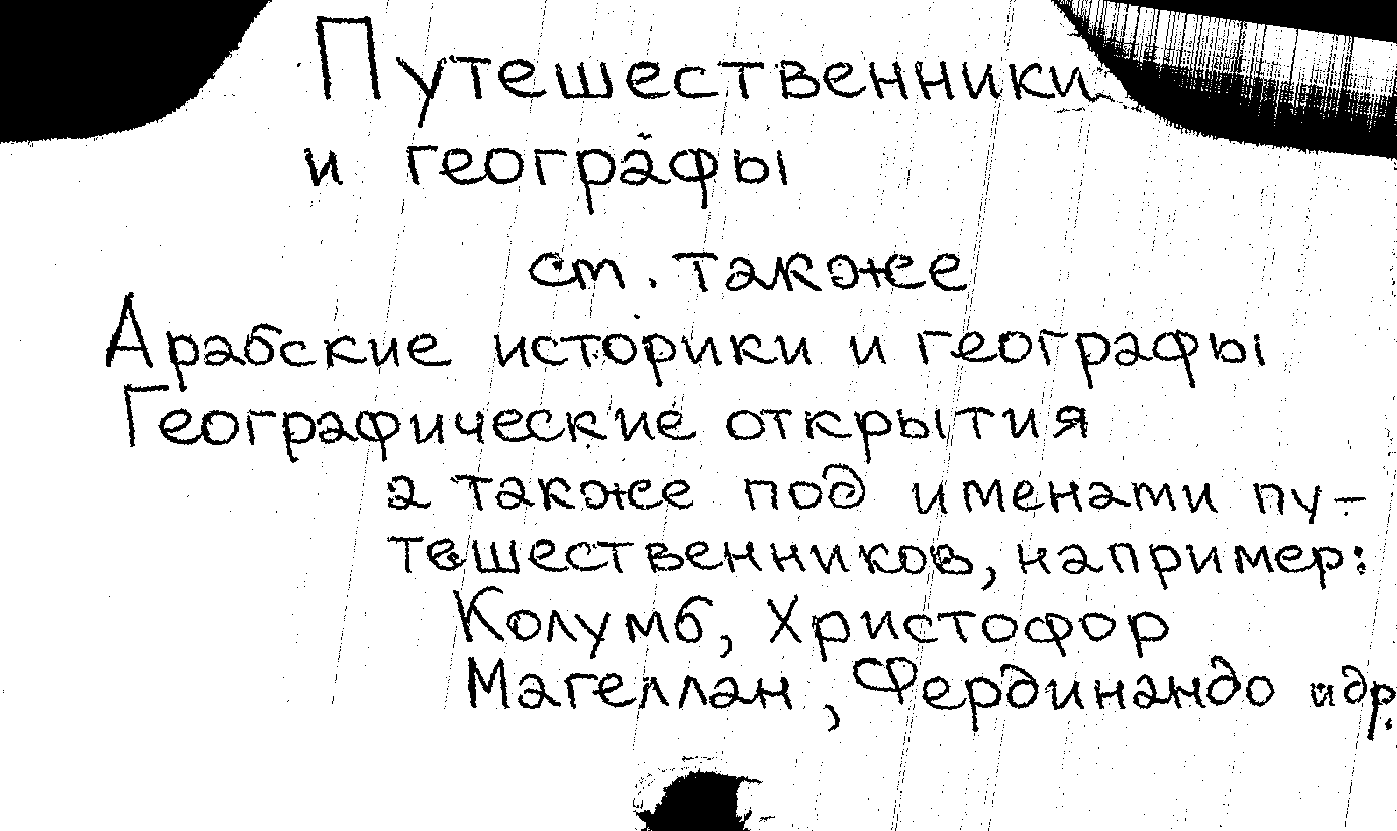 Путешественники
и географы
см. также
Арабские историки и географы
Географические открытия
а также под именами пу-
тешественников, например:
Колумб, Христофор
Магеллан, Фердинандо и др.